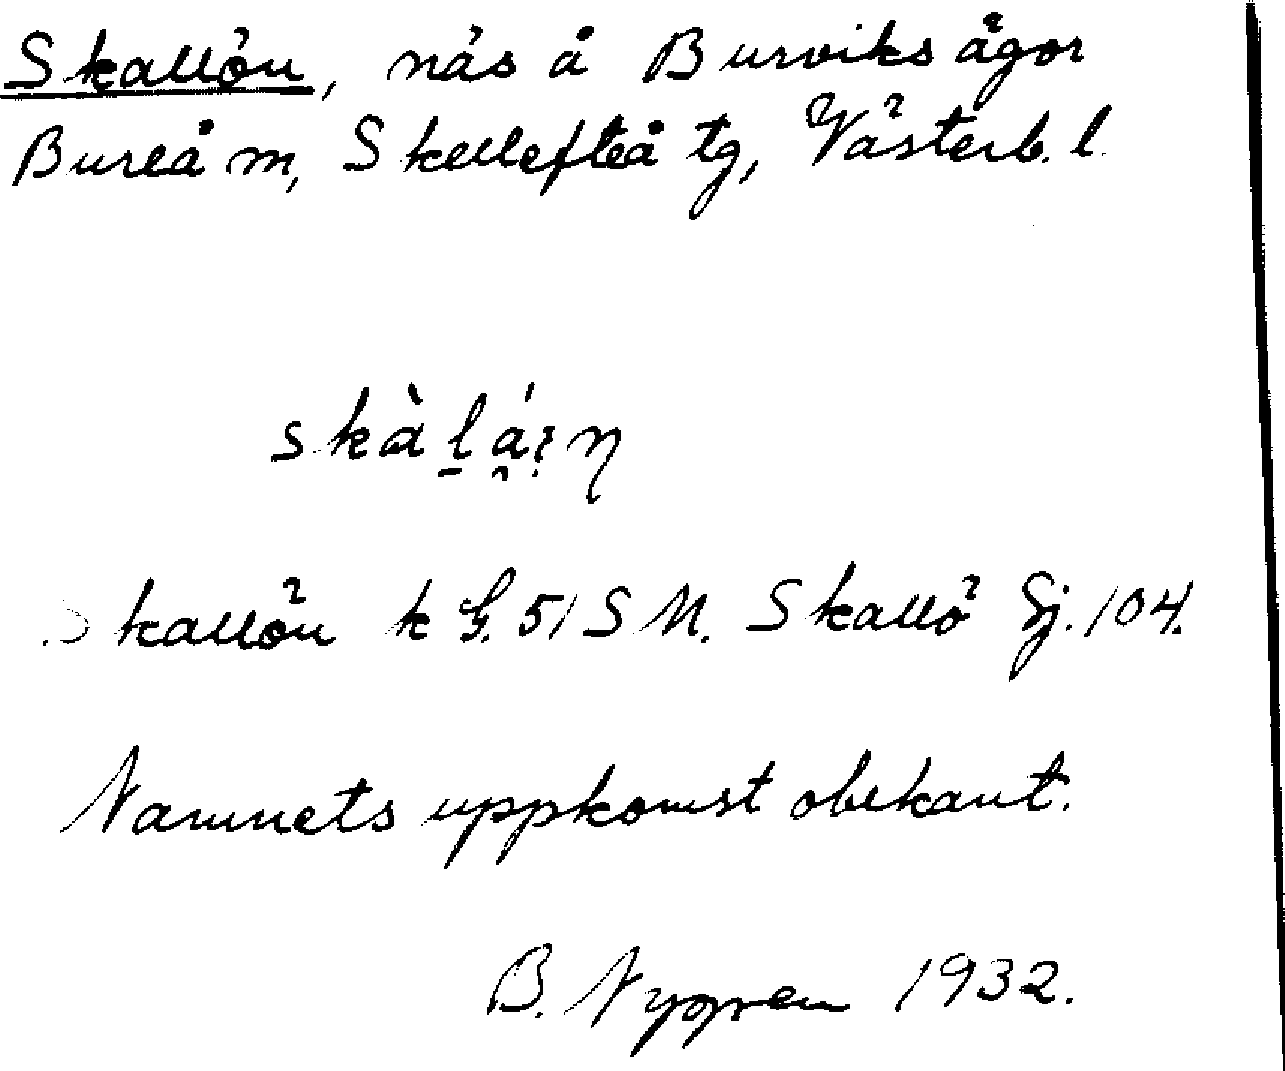 Skallön, näs å Burviks ägor
Bureå m, Skellefteå tg, Västerb. l.
Skallön k G. 51 S M. Skallö Sj. 104.
Namnets uppkomst obekant.
B. Nygren 1932.